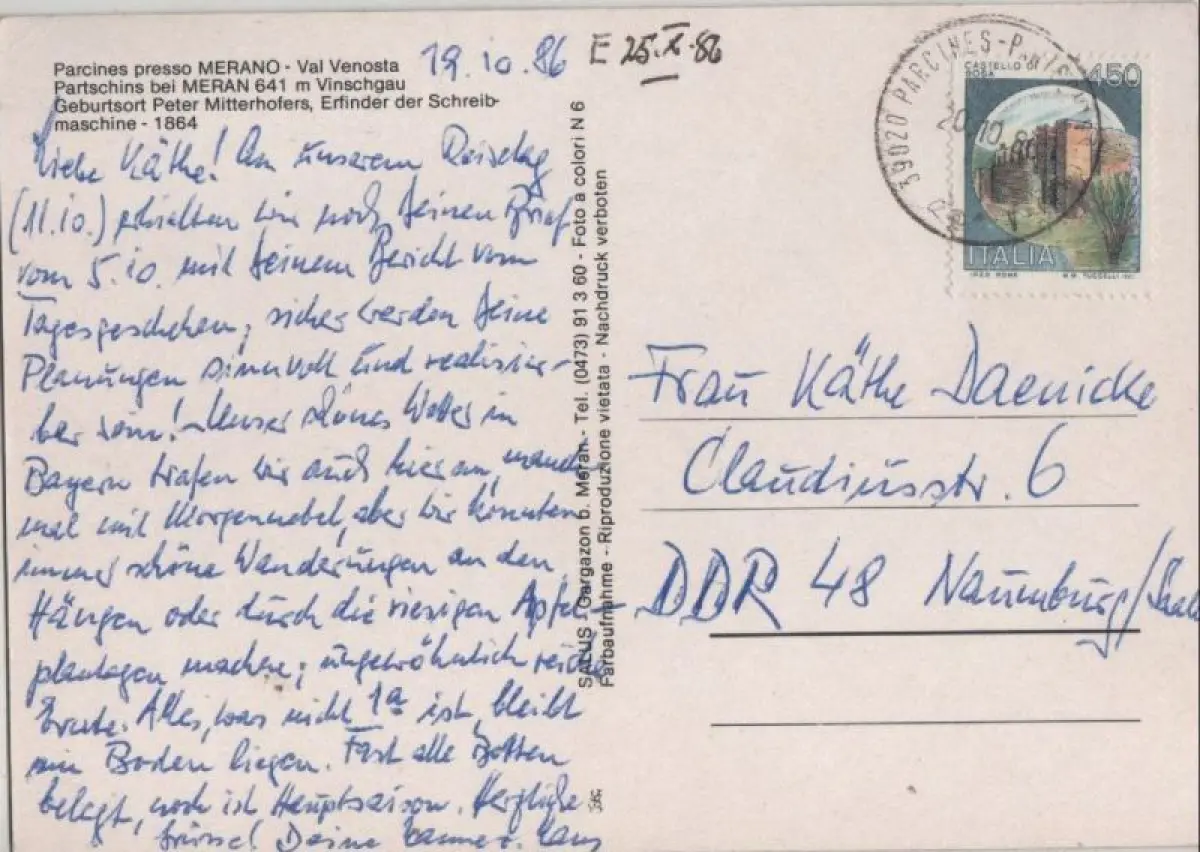 Parcines presso MERANO - Val Venosta
Partschins bei MERAN 641 m Vinschgau
Geburtsort Peter Mitterhofers, Erfinder der Schreib-
maschine - 1864
19.10.86
E 25.X.86
Liebe Käthe! An unserem Reisetag
(11.10.) erhielten wir noch Deinen Brief
vom 5.10. mit Deinem Bericht vom
Tagesgeschehen, sicher werden Deine
Planungen sinnvoll und realisier-
bar sein! Unser schönes Wetter in
Bayern trafen wir auch hier an, manch-
mal mit Morgennebel, aber wir konnten
immer schöne Wanderungen an den
Hängen oder durch die riesigen Apfel-
plantagen machen; ungewöhnlich reiche
Ernte. Alles, was nicht 1a ist, bleibt
am Boden liegen. Fast alle Betten
belegt, noch ist Hauptsaison. Herzliche
Grüsse! Deine
SALUS - Gargazon b. Meran - Tel. (0473) 91 3 60 - Foto a colori N 6
Farbaufnahme - Riproduzione vietata - Nachdruck verboten
39020 PARCINES-P
20.10.86
CASTELLO DI
ROSA
450
ITALIA
I.P.Z.S. ROMA
Frau Käthe Daenicke
Claudiusstr. 6
DDR 48 Naumburg/Saale